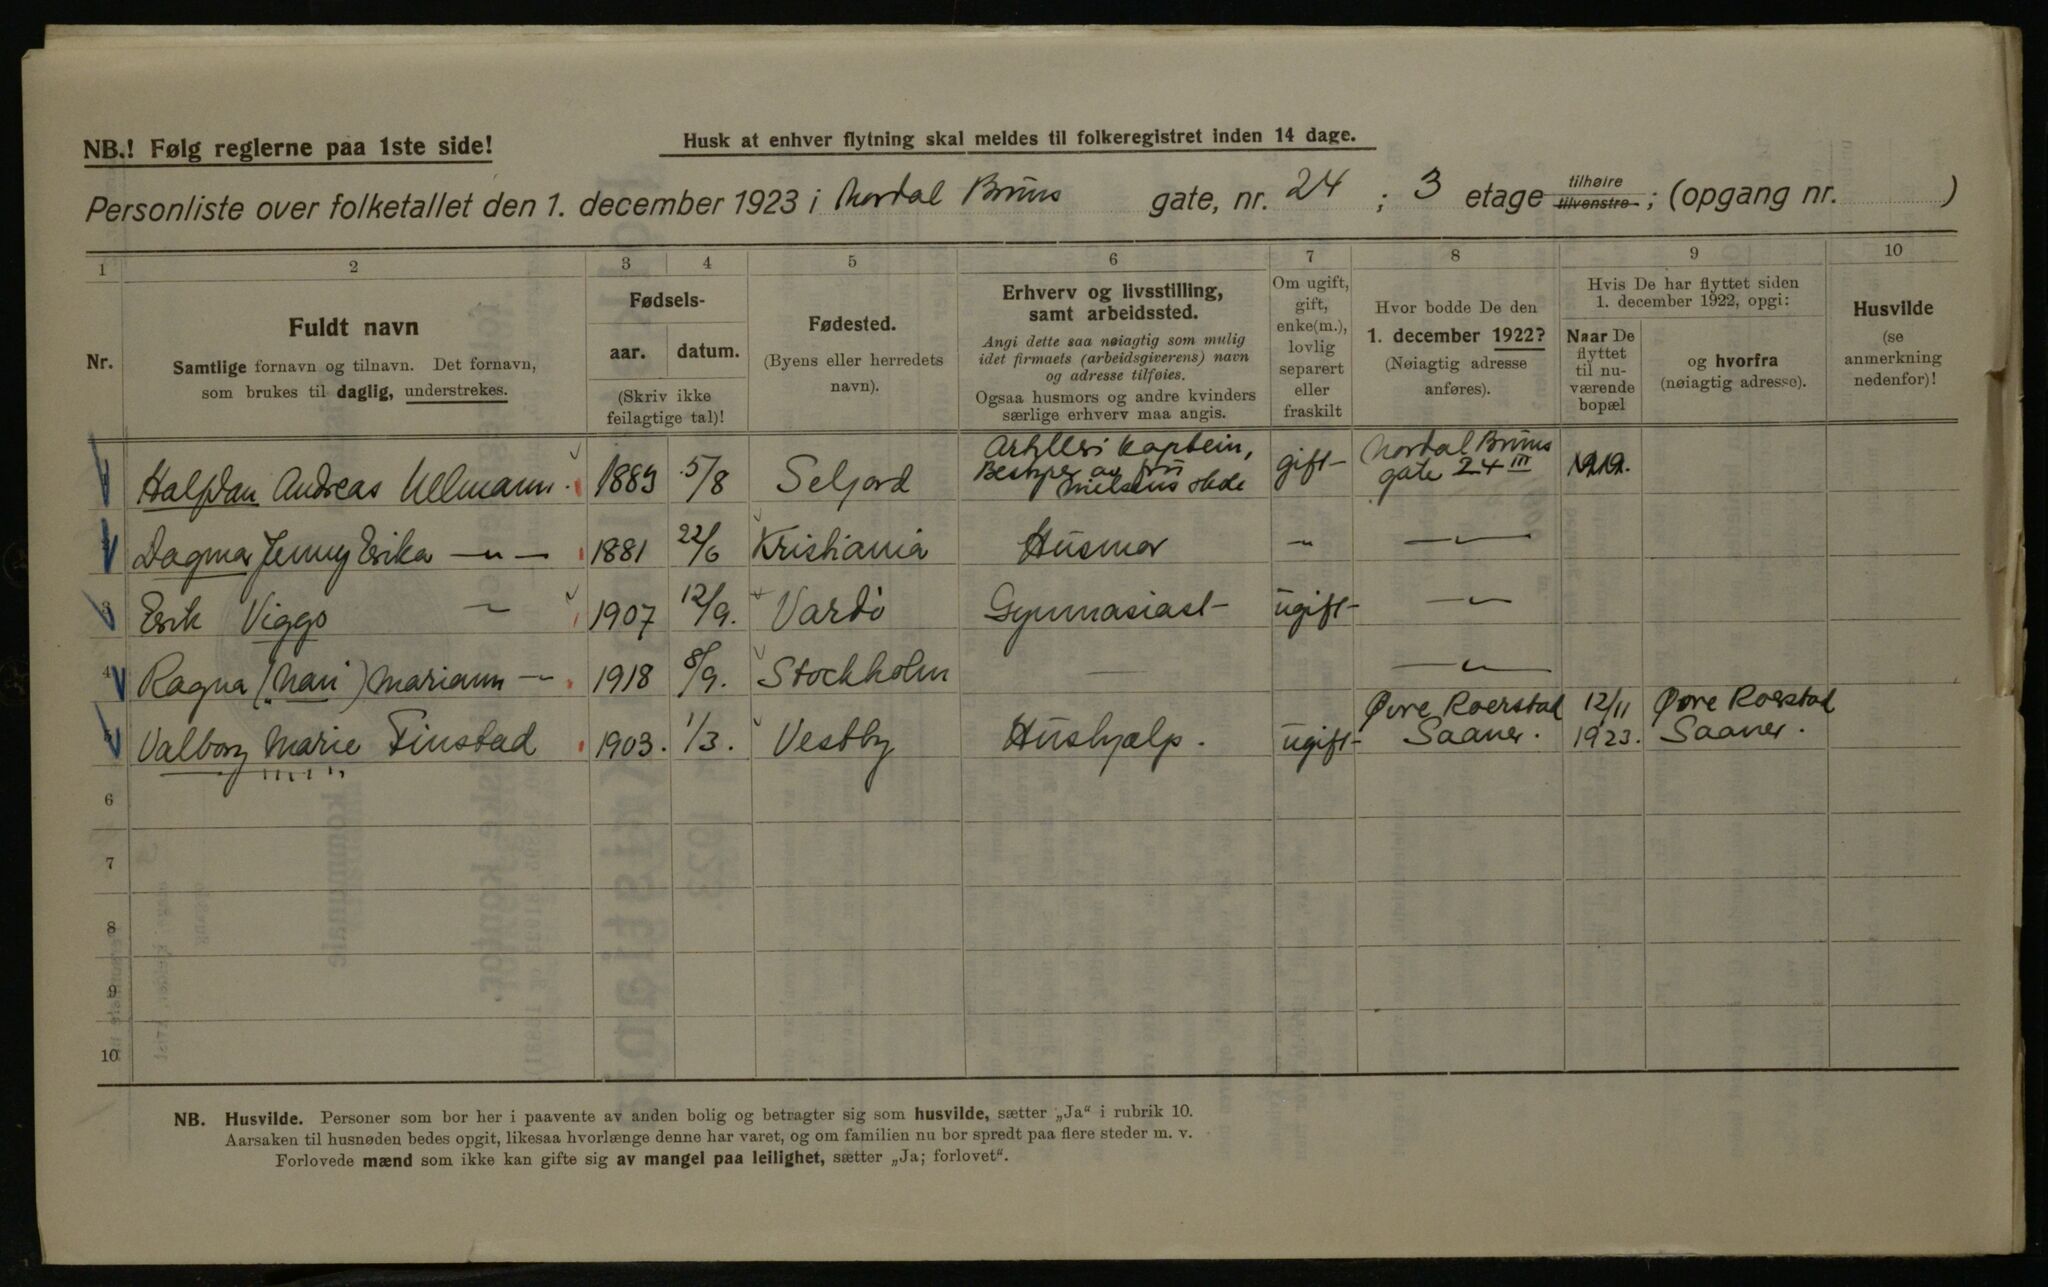 NB.! Følg reglerne paa 1ste side!
Husk at enhver flytning skal meldes til folkeregistret inden 14 dage.
Personliste over folketallet den 1. december 1923 i Nordal Bruns gate, nr. 24 ; 3 etage tilhøire tilvenstre ; (opgang nr. )
1 2 3 4 5 6 7 8 9 10
Nr.
Fuldt navn
Samtlige fornavn og tilnavn. Det fornavn,
som brukes til daglig, understrekes.
Fødsels-
aar. datum.
(Skriv ikke
feilagtige tal)!
Fødested.
(Byens eller herredets
navn).
Erhverv og livsstilling,
samt arbeidssted.
Angi dette saa nøiagtig som mulig
idet firmaets (arbeidsgiverens) navn
og adresse tilføies.
Ogsaa husmors og andre kvinders
særlige erhverv maa angis.
Om ugift,
gift,
enke(m.),
lovlig
separert
eller
fraskilt
Hvor bodde De den
1. december 1922?
(Nøiagtig adresse
anføres).
Hvis De har flyttet siden
1. december 1922, opgi:
Naar De
flyttet
til nu-
værende
bopæl
og hvorfra
(nøiagtig adresse).
Husvilde
(se
anmerkning
nedenfor)!
Halfdan Andreas Ullmann 1883 5/8 Seljord Artilleri kaptein, Bestyrer av frü Nielsens skole gift Nordal Bruns gate 24 III 1919.
Dagmar Jenny Erika —"— 1881 22/6 Kristiania Husmor —"— —"—
3 Erik Viggo —"— 1907 12/9. Vardö Gymnasiast ugift —"—
4 Ragna (Nan) Mariann —"— 1918 8/9. Stockholm — —"—
Valborg Marie Finstad 1903. 1/3. Vestby Hushjælp. ugift Øvre Roerstad Saaner. 12/11 1923. Øvre Roerstad Saaner.
6
7
8
9
10
NB. Husvilde. Personer som bor her i paavente av anden bolig og betragter sig som husvilde, sætter „Ja“ i rubrik 10.
Aarsaken til husnøden bedes opgit, likesaa hvorlænge denne har varet, og om familien nu bor spredt paa flere steder m. v.
Forlovede mænd som ikke kan gifte sig av mangel paa leilighet, sætter „Ja; forlovet“.